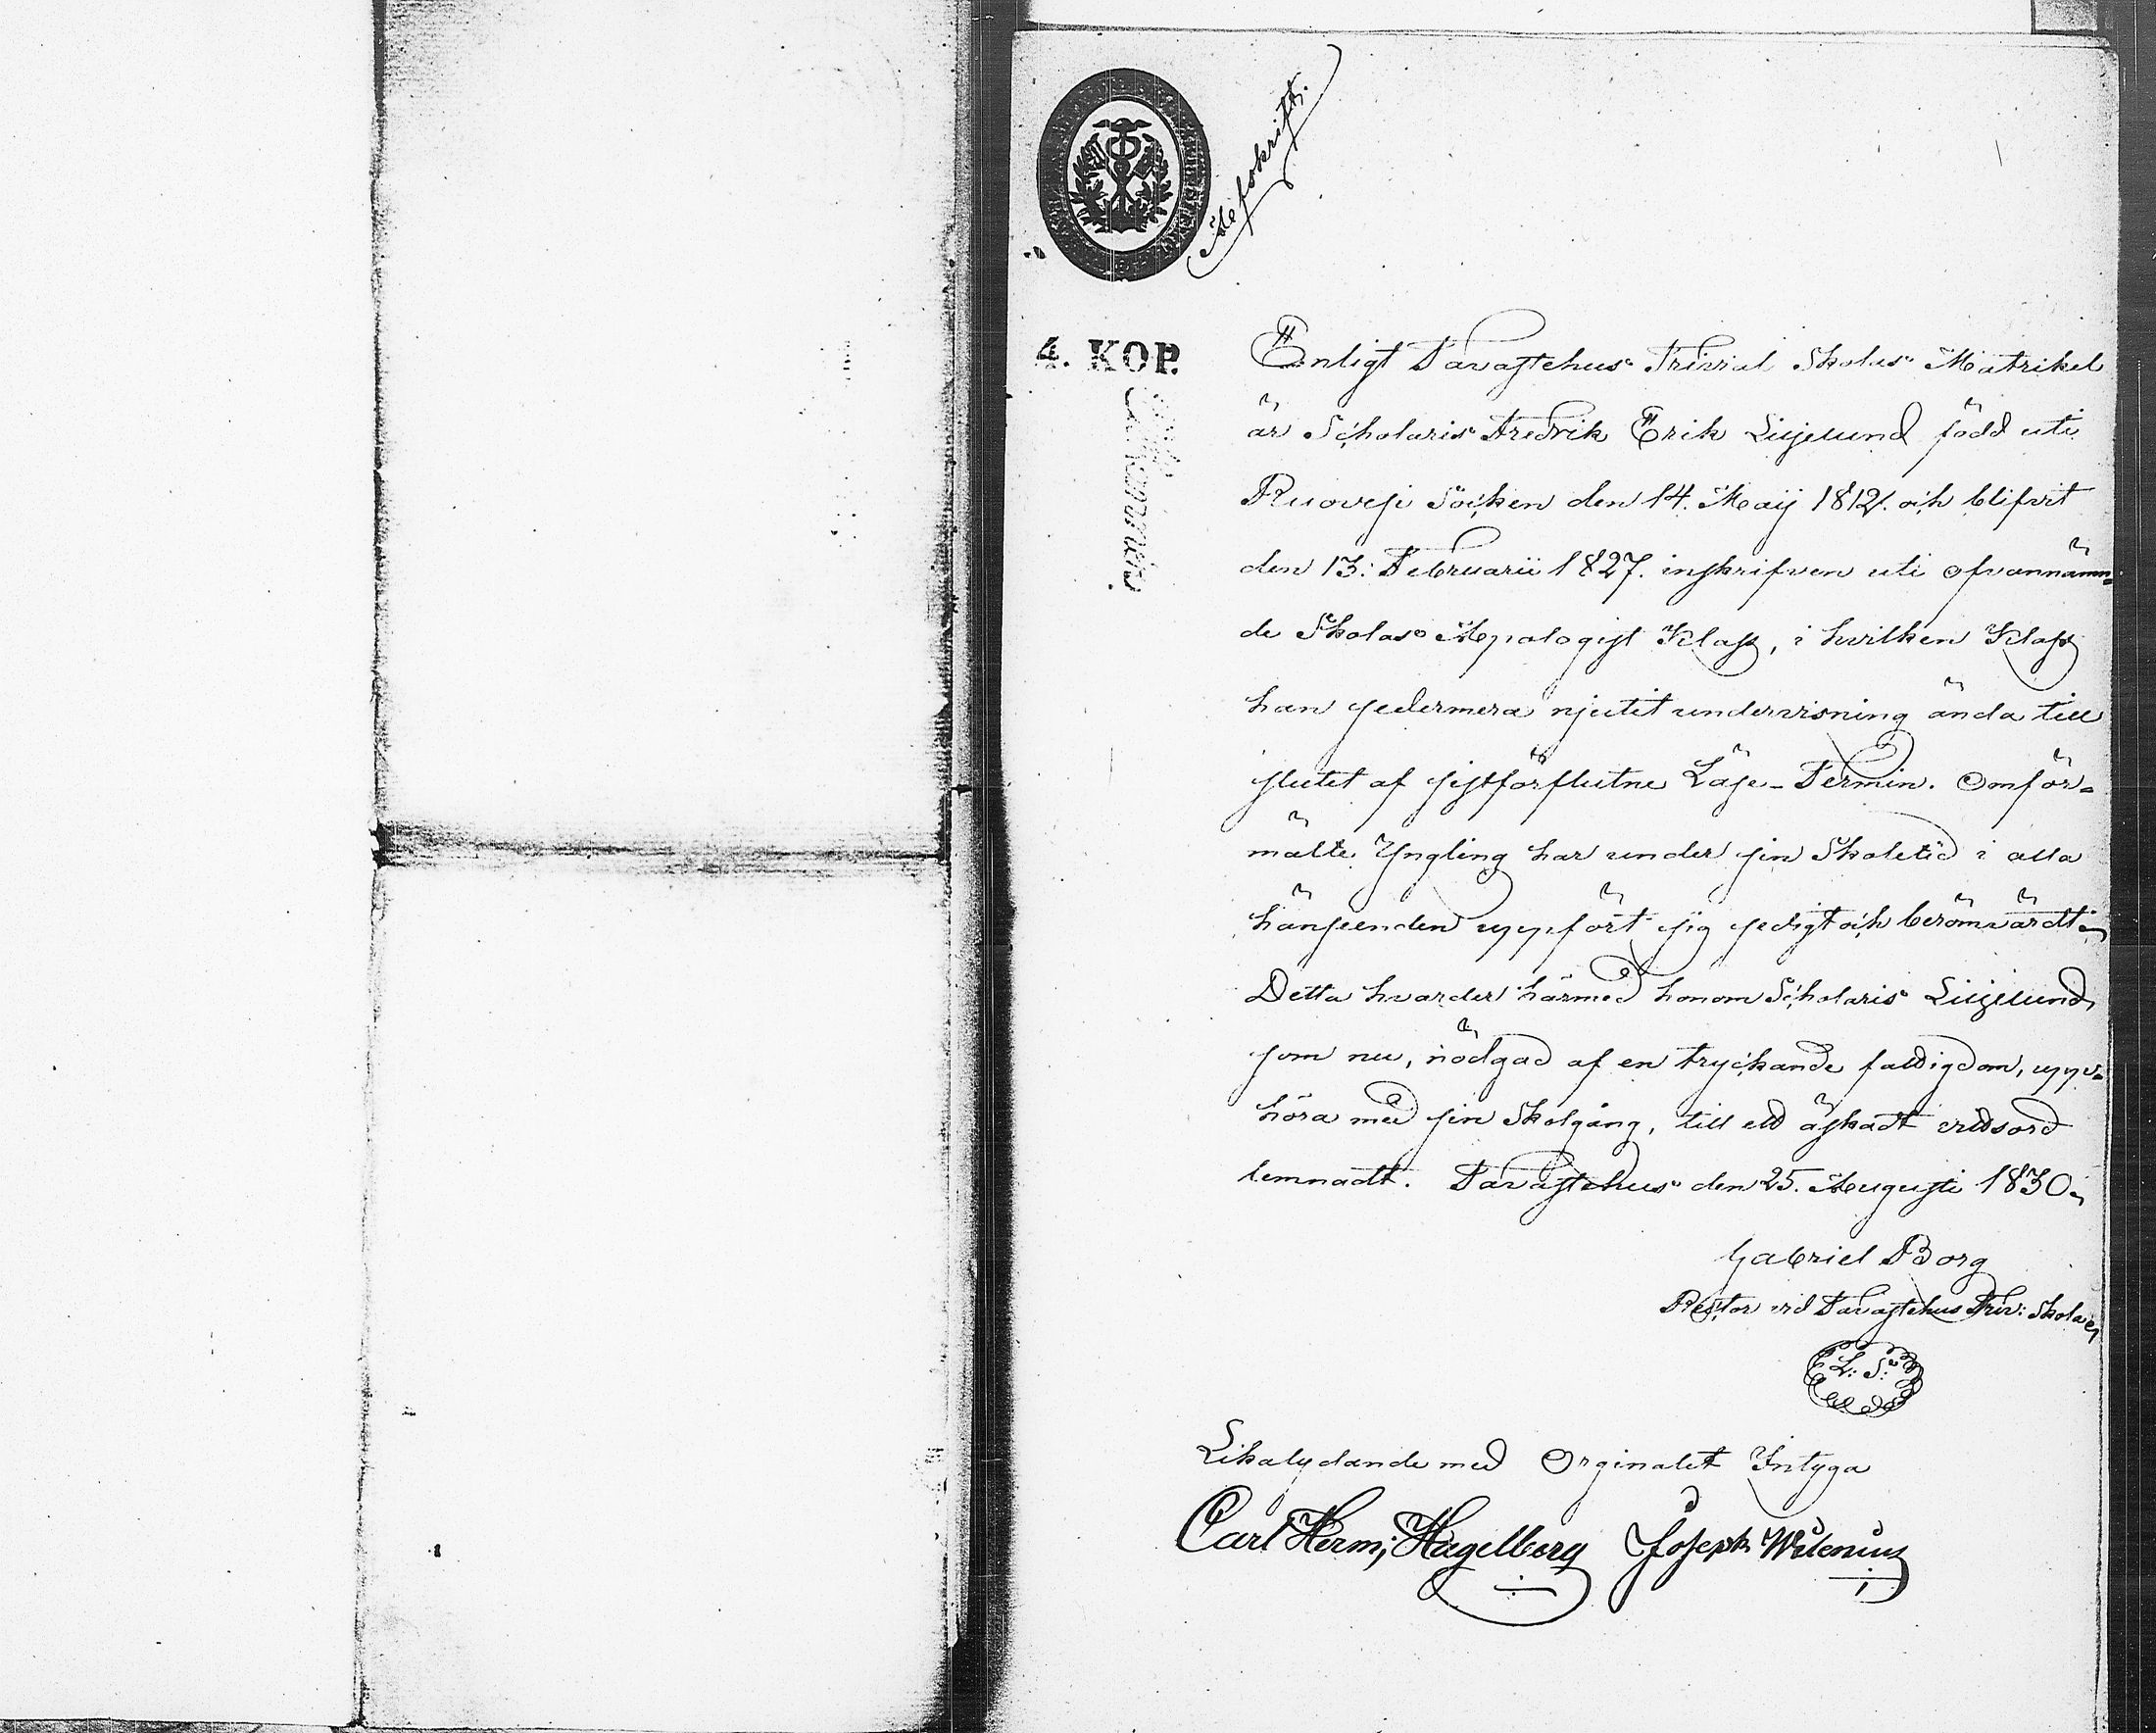 Afskrift.
4. KOP.
Enligt Tavastehus Trivial Skolas Matrikel
är Scholaris Fredrik Erik Liljelund född uti
Ruovesi Socken den 14. Maij 1812. och blifvit
den 13: Februarii 1827. inskrifven uti ofvannämn=
de Skolas Apologist Klass, i hvilken Klass
han sedermera njutit undervisning ända till
slutet af sistförflutne Läse-Termin. Omför=
mälte Yngling har under sin Skoletid i alla
hänseenden uppfört sig sedigt och berömvärdt.
Detta hvarder härmed honom Scholaris Liljelund,
som nu, nödgad af en tryckande fattigdom, upp=
höra med sin Skolgång, till ett äskadt vittsord
lemnadt. Tavastehus den 25. Augusti 1830.
Gabriel Borg
Rector vid Tavastehus Triv: Skola
L: S:
Likalydande med Orginalet Intyga
Carl Herm; Hagelberg Joseph Wilenius